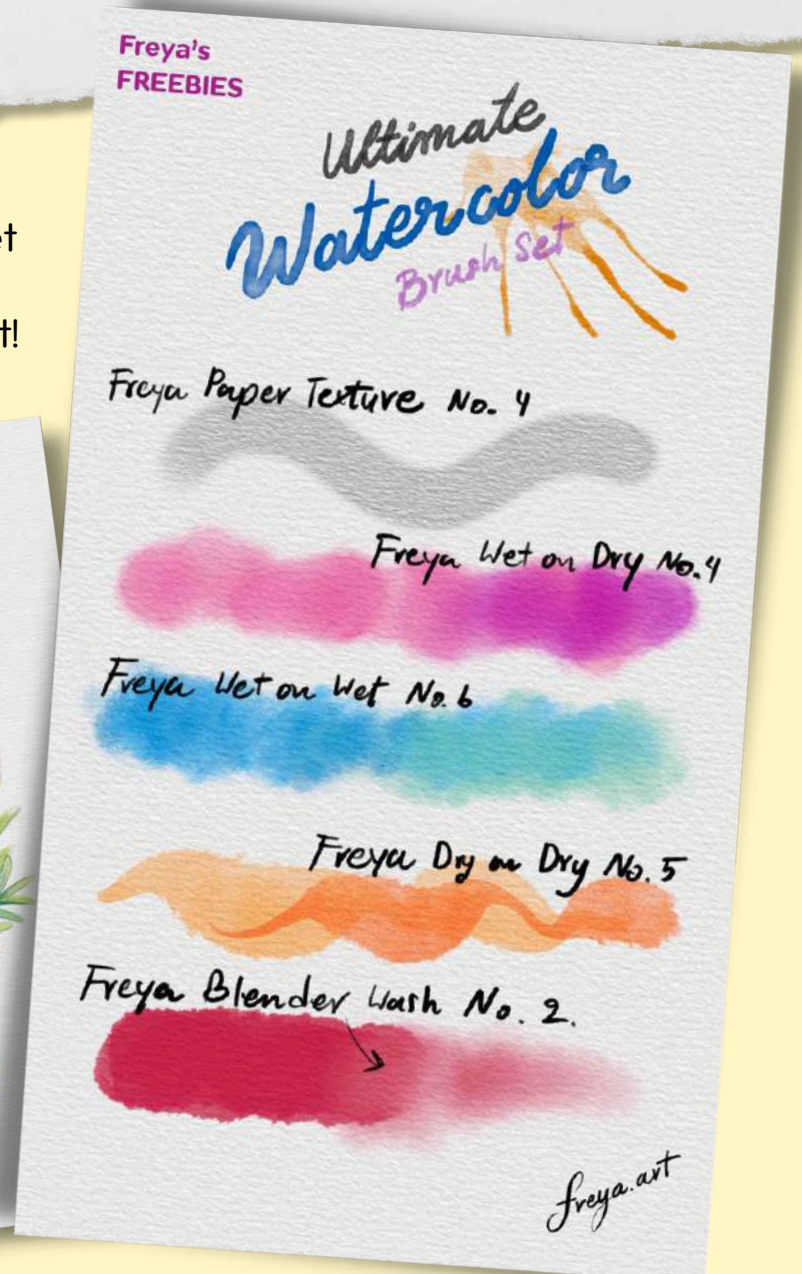 Freya's
FREEBIES
Ultimate
Watercolor
Brush Set
t!
Freya Paper Texture No. 4
Freya Wet on Dry No.4
Freya Wet on Wet No. 6
Freya Dry on Dry No. 5
Freya Blender Wash No. 2.
freya.art